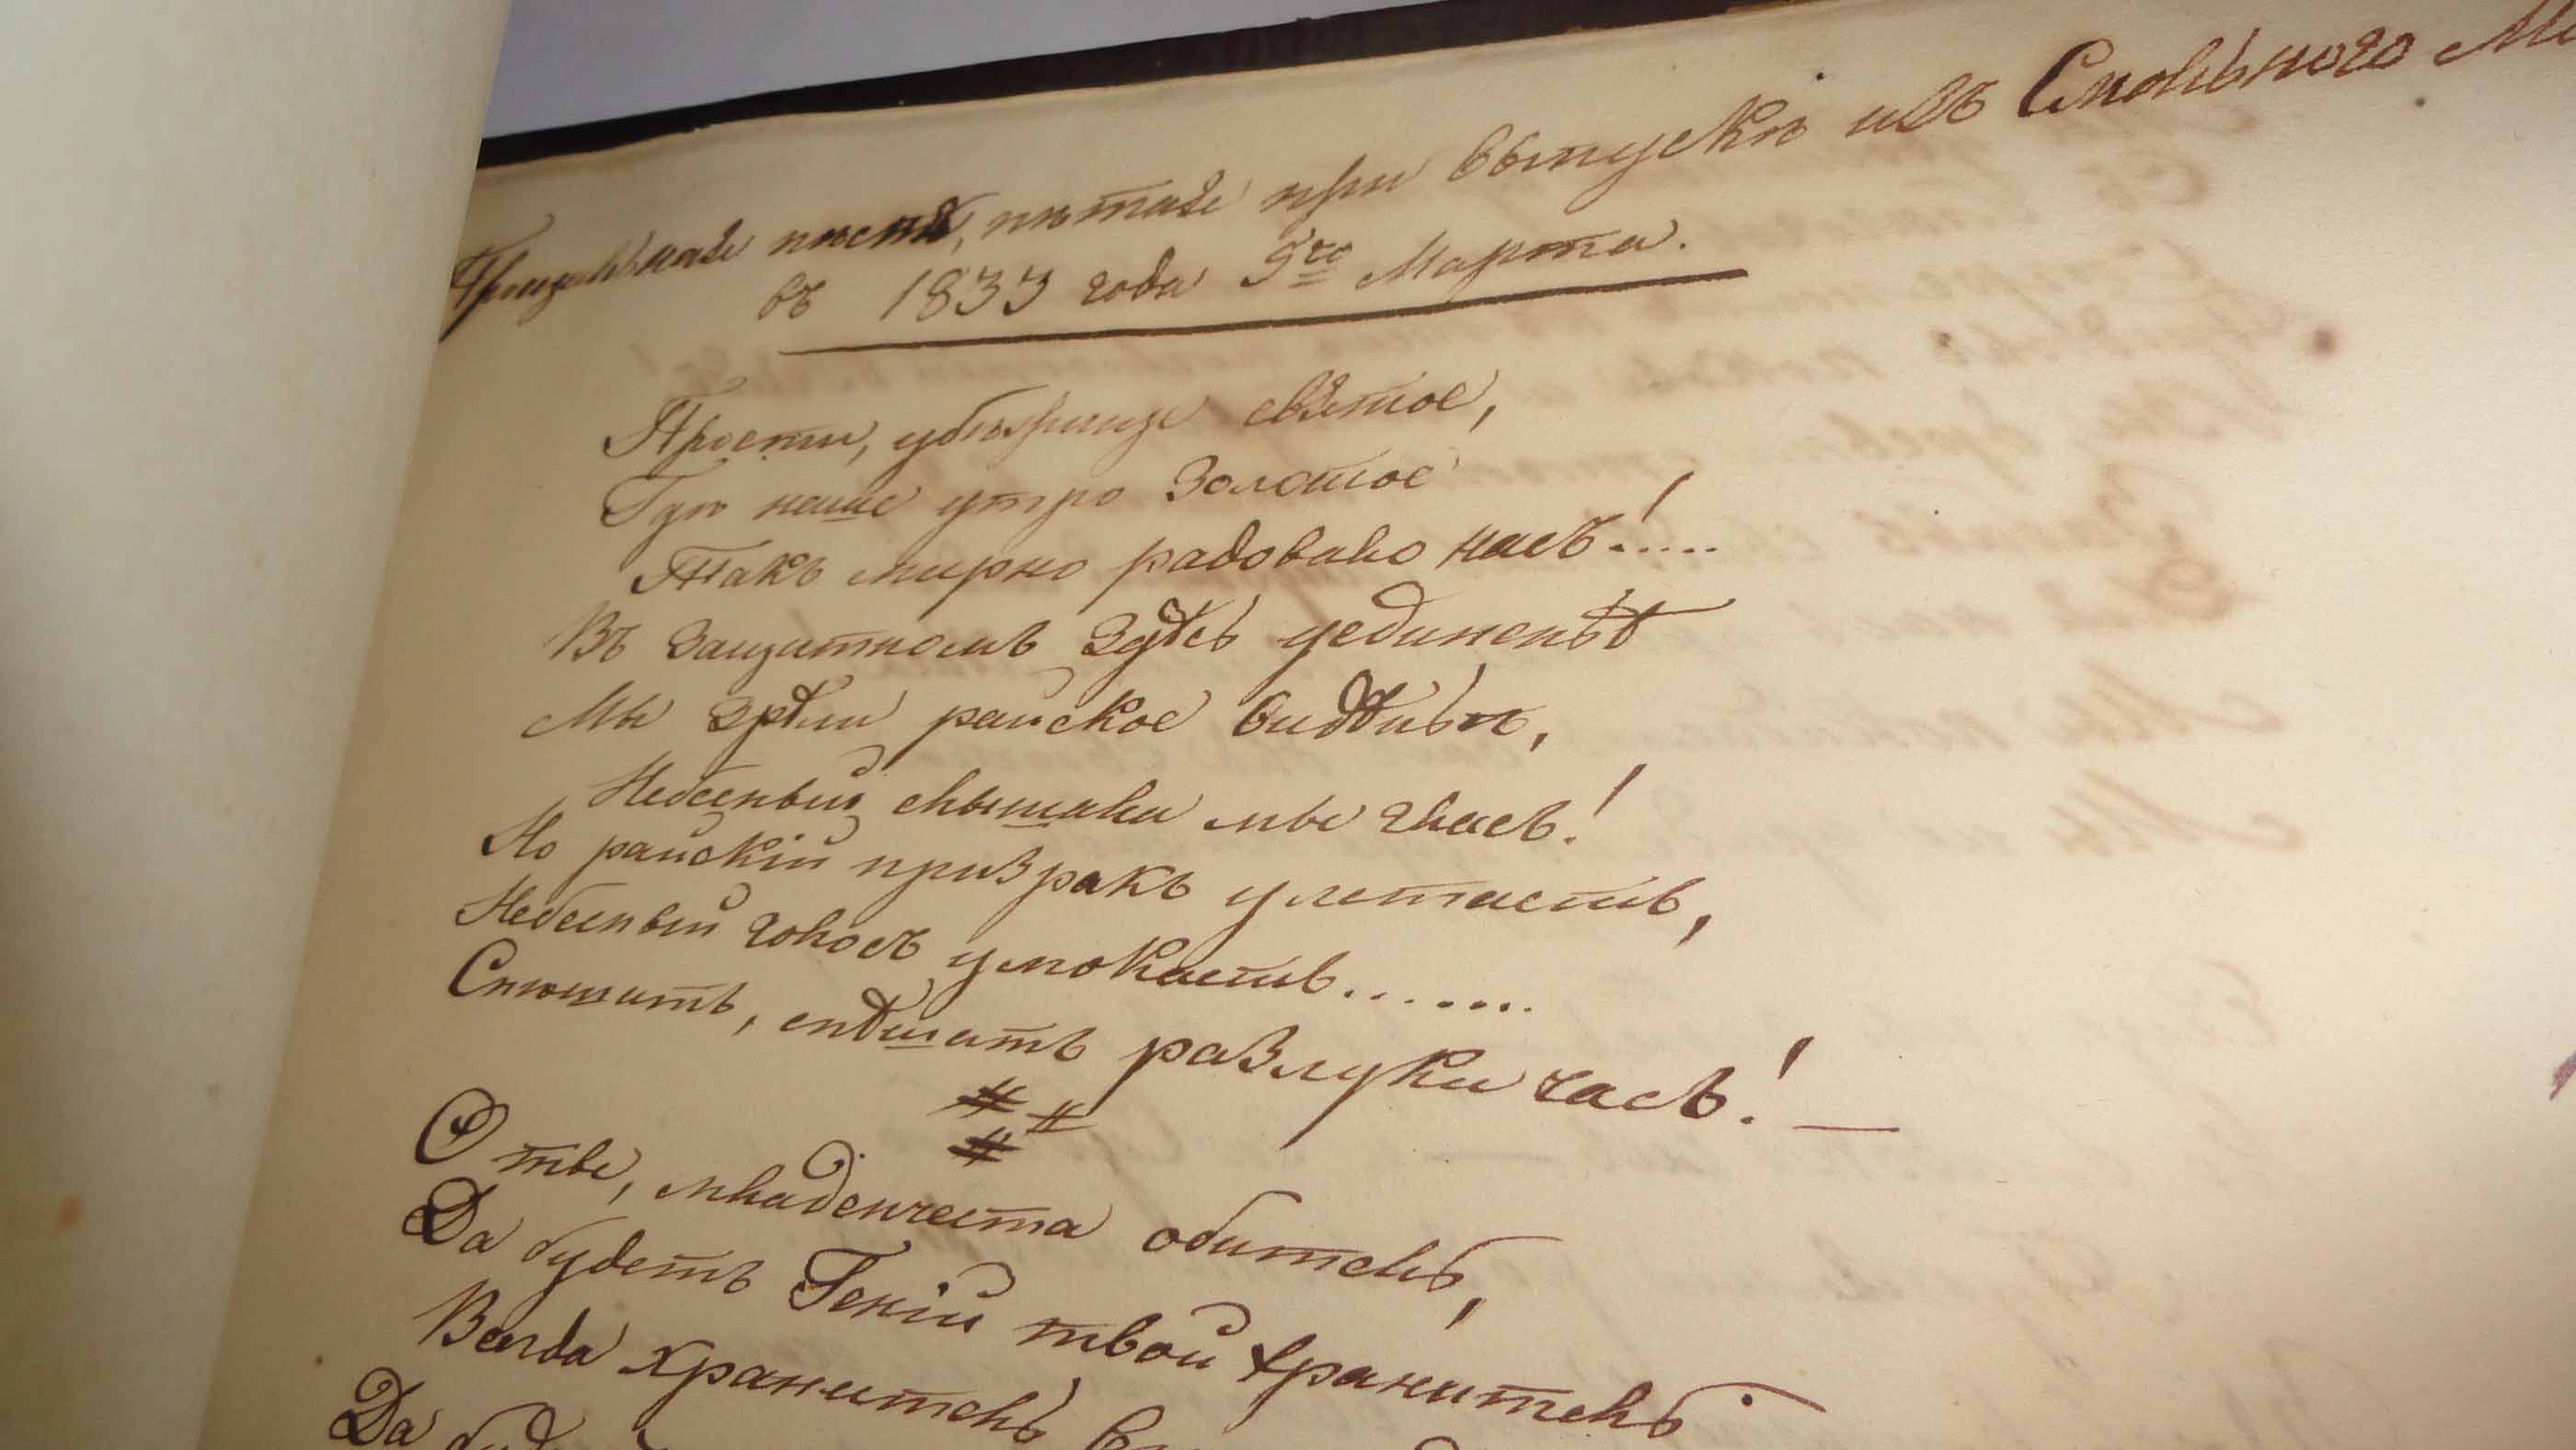 Прощальная пѣснь, пѣтая при выпускѣ изъ Смольнаго М
въ 1833 года 9го Марта.
Прости, убѣжище святое,
Гдѣ наше утро золотое
Такъ мирно радовало насъ!.....
Въ защитномъ здѣсь уединеньѣ
Мы зрѣли райское видѣньѣ,
Небесный слышали мы гласъ!
Но райскій призракъ улетаетъ,
Небесный голосъ умолкаетъ.......
Спѣшитъ, спѣшитъ разлуки часъ! —
О ты, младенчества обитель,
Да будетъ Геній твой хранитель
Всегда хранитель
Да